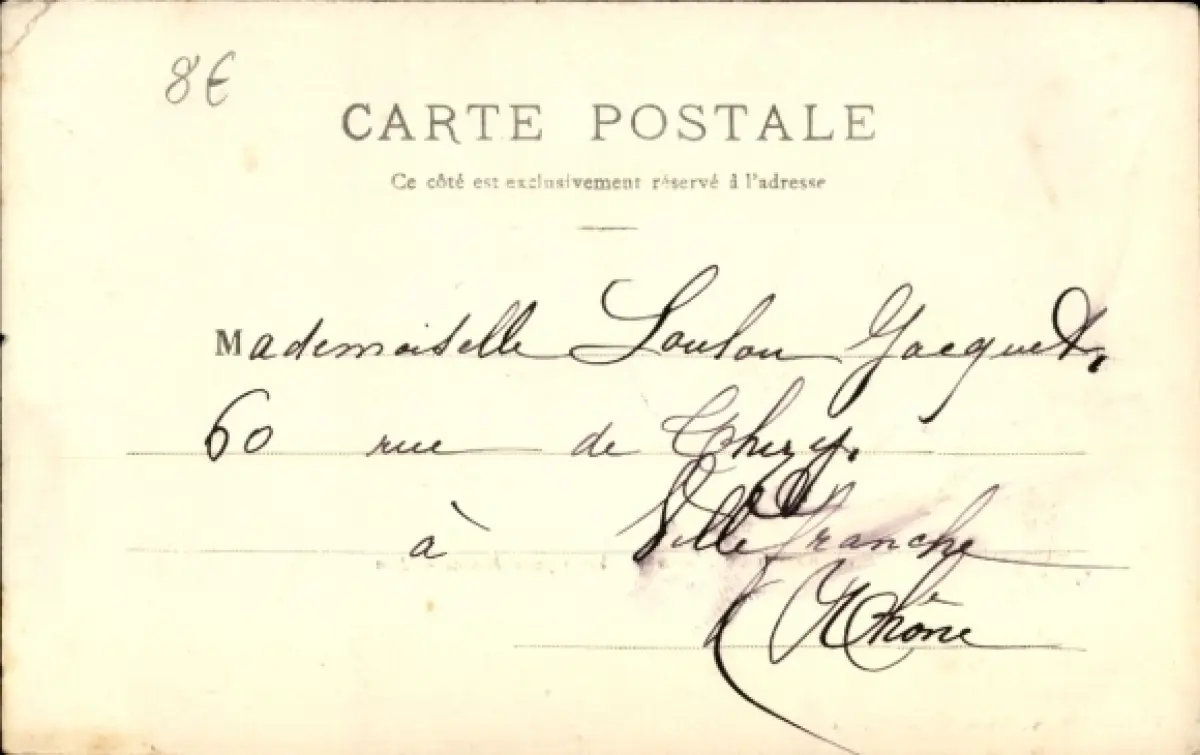 8€
CARTE POSTALE
Ce côté est exclusivement réservé à l'adresse
Mademoiselle Loulou Jacquet,
60 rue de Thizy.
à Villefranche
Rhône